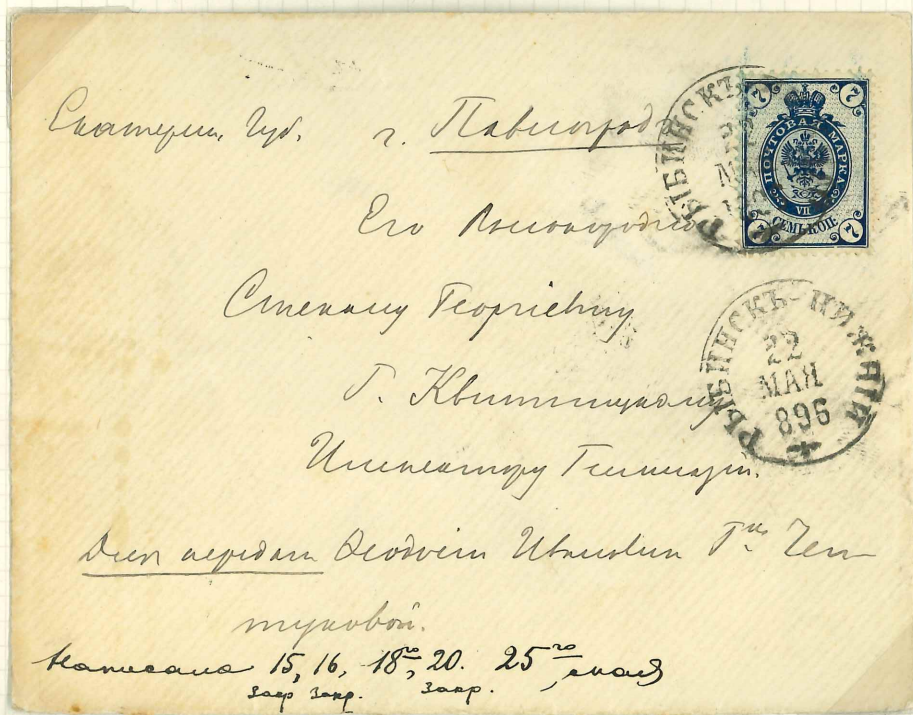 Екатерин. Губ. г. Павлоград
Его Высокородію
Степану Георгіевичу
Г. Квитницкому
Инспектору Гимназіи.
Для передачи Ѳеодосіи Ивановне Г-же
туковой.
Написала 15, 16, 18го, 20. 25го мая
закр. закр.
РЫБИНСКЪ
ПОЧТОВАЯ МАРКА
7 7
VII
СЕМЬ КОП.
7 7
РЫБИНСКЪ-НИЖ
22
МАЯ
896